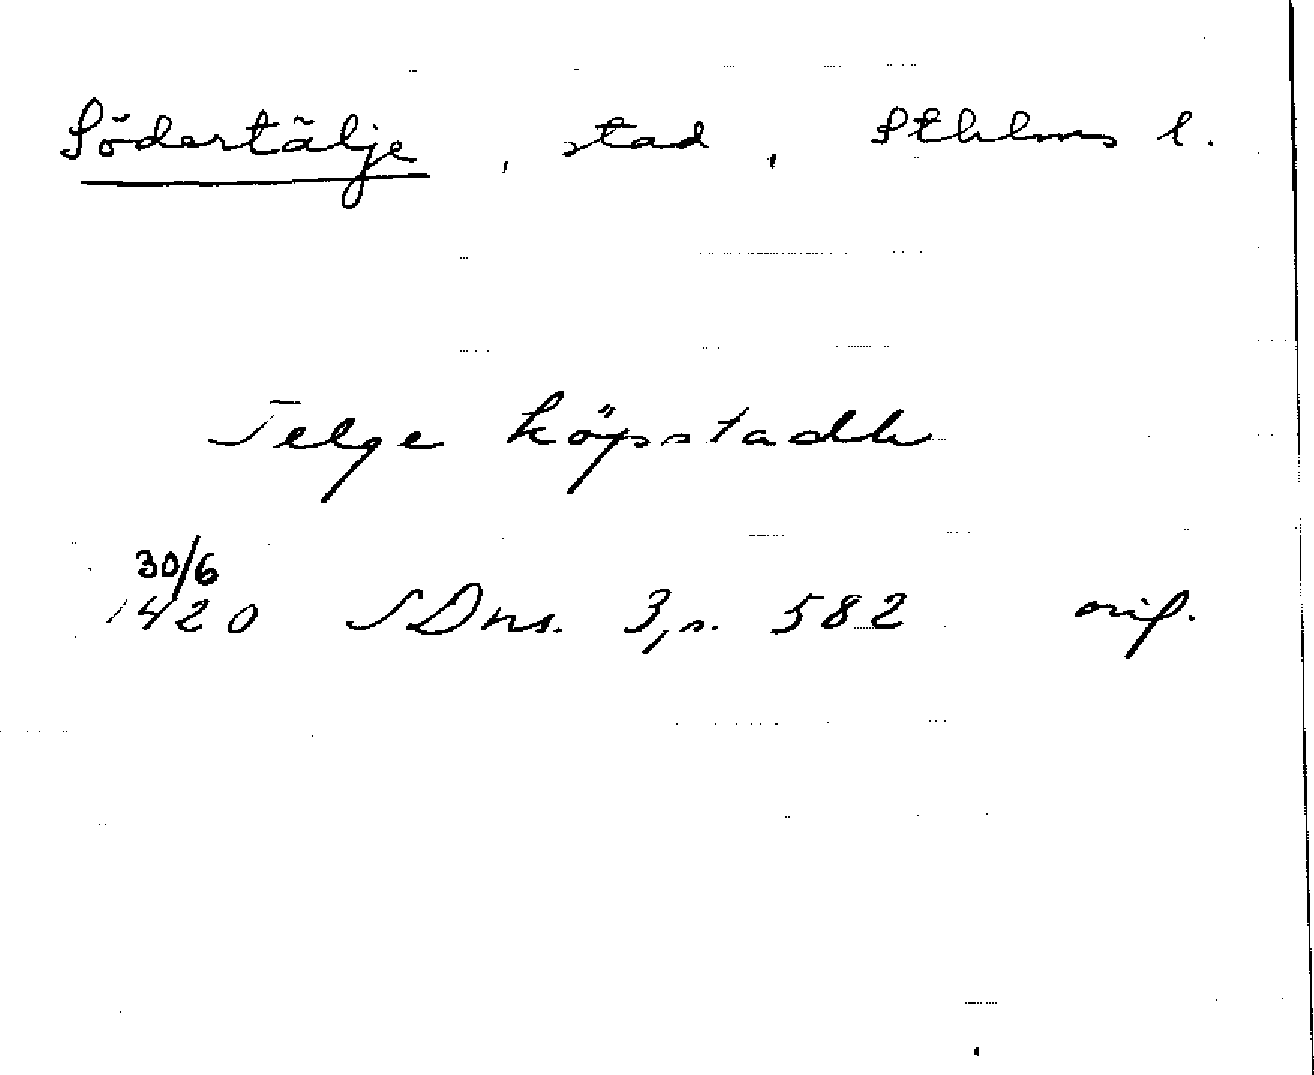 Södertälje, stad, Sthlms l.
Telge köpstadh
30/6
1420 SDns. 3, s. 582 orig.